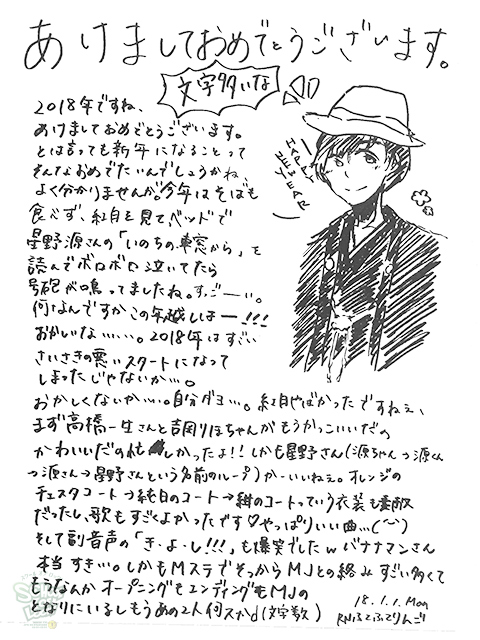 あけましておめでとうございます。
文字多いな
HAPPY
NEW YEAR
2018年ですね、
あけましておめでとうございます。
とは言っても新年になることって
そんなおめでたいんでしょうかね、
よく分かりませんが。今年はそばも
食べず、紅白を見てベッドで
星野源さんの「いのちの車窓から」を
読んでボロボロ泣いてたら
号砲が鳴ってましたね。すっごーい。
何なんですかこの年越しはー!!!
おかしいな……。2018年はすごい
さいさきの悪いスタートになって
しまったじゃないか…。
おかしくないか…。自分ダヨ…。紅白やばかったですねぇ、
まず高橋一生さんと吉岡りほちゃんがもうかっこいいだの
かわいいだの忙しかったよ!!しかも星野さん(源ちゃん→源くん
→源さん→星野さんという名前のループ)かーいいねぇ。オレンジの
チェスタコート→純白のコート→紺のコートっていう衣装も素敵
だったし、歌もすごくよかったです♡やっぱりいい曲…(〜)
そして副音声の「き・よ・し!!!」も爆笑でしたwバナナマンさん
本当すき…。しかもMステでそっからMJとの絡みすごい多くて
もうなんかオープニングもエンディングもMJの
となりにいるしもうあの2人何スかd(文字数)
18.1.1.Mon
RNふてふてりんご